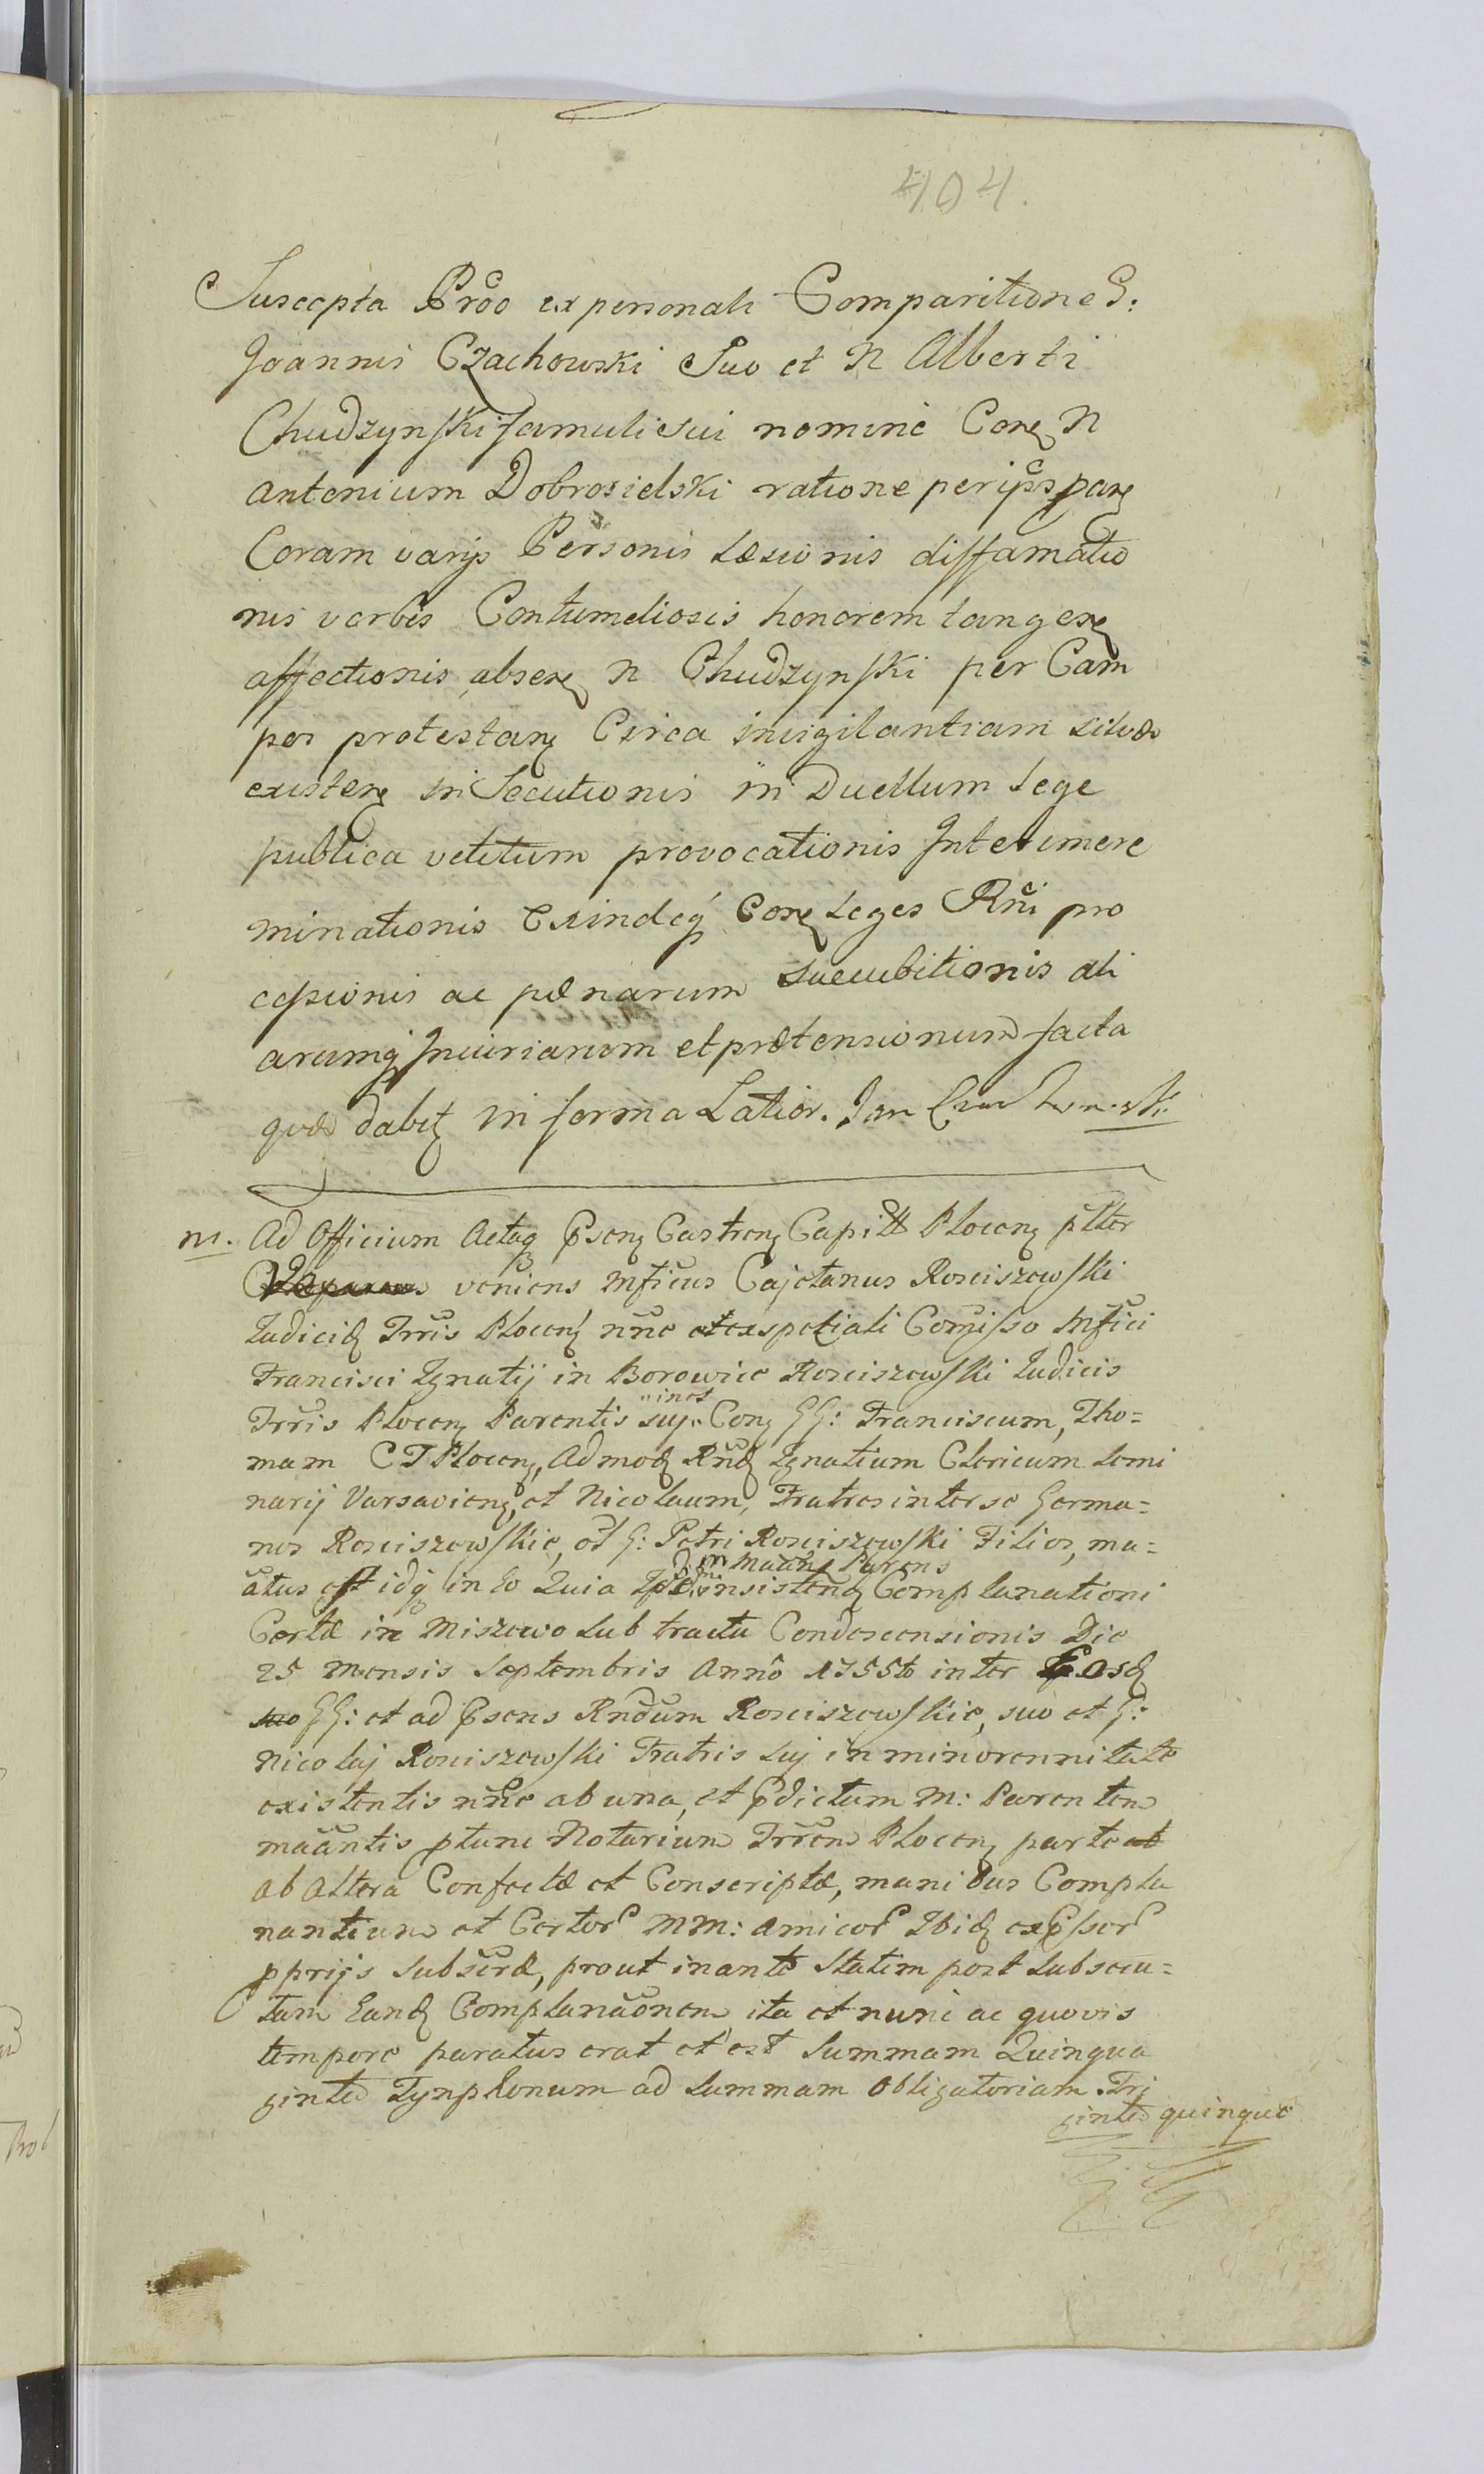 404.
Suscepta Prõo ex personali Comparitione G:
Joannis Czachowski Suo et N Alberti
Chudzynski famuli sui nomine Con N
Antonium Dobrosielski ratione per ipss par
Coram varijs Personis Læsionis diffamatio
nis verbis Contumeliosis honorem tangen
affectionis, absen N Chudzynski per Cam
pos protestan Circa invigilantiam silvæ
existen in Secutionis in Duellum Lege
publica vetitum provocationis Interimere
minationis Exindeq Con Leges Rñi pro
cessionis ac pænarum Succubitionis ali
arumq Iniuriarum et prætensionum facta
quæ dabit in forma Latior. Jan Czachowski
m. Ad Officium Actaq Psen Castren Capitt Plocen pltter
veniens Mficus Cajetanus Rosciszewski
Iudicid Trris Plocen nñe et ex speciali Comisso Mfici
Francisci Ignatij in Borowice Rosciszewski Iudicis
inet
Trris Plocen Parentis suj Con GG: Franciscum, Tho=
mam CT Plocen, Admod Rnd Ignatium Clericum Semi
narij Varsavien, et Nicolaum, Fratres inter se Germa=
nos Rosciszewskie, ol G: Petri Rosciszewski Filios, ma=
M maãn Parens
ãtus est idq in Eo Quia insisten Complanationi
Certæ in Miszewo sub tractu Condescensionis Die
25 Mensis Septembris Anno 1755to inter Eosd
GG: et ad Psens Rndum Rosciszewskie, suo et G:
Nicolaj Rosciszewski Fratris suj in minorennitate
existentis nñe ab una, et Pdictum M: Parentem
maãntis ptunc Notarium Trrem Plocen parte
ab altera Confectæ et Conscriptæ, manibus Compla
nantium et Certor MM: Amicor Ibid exPssor
pprijs subscræ, prout in ante Statim post subsecu=
tam Eand Complanaõnem ita et nunc ac quovis
tempore paratus erat et est Summam Quinqua
ginta Tynphonum ad Summam Obligatoriam Tri
ginta quinque